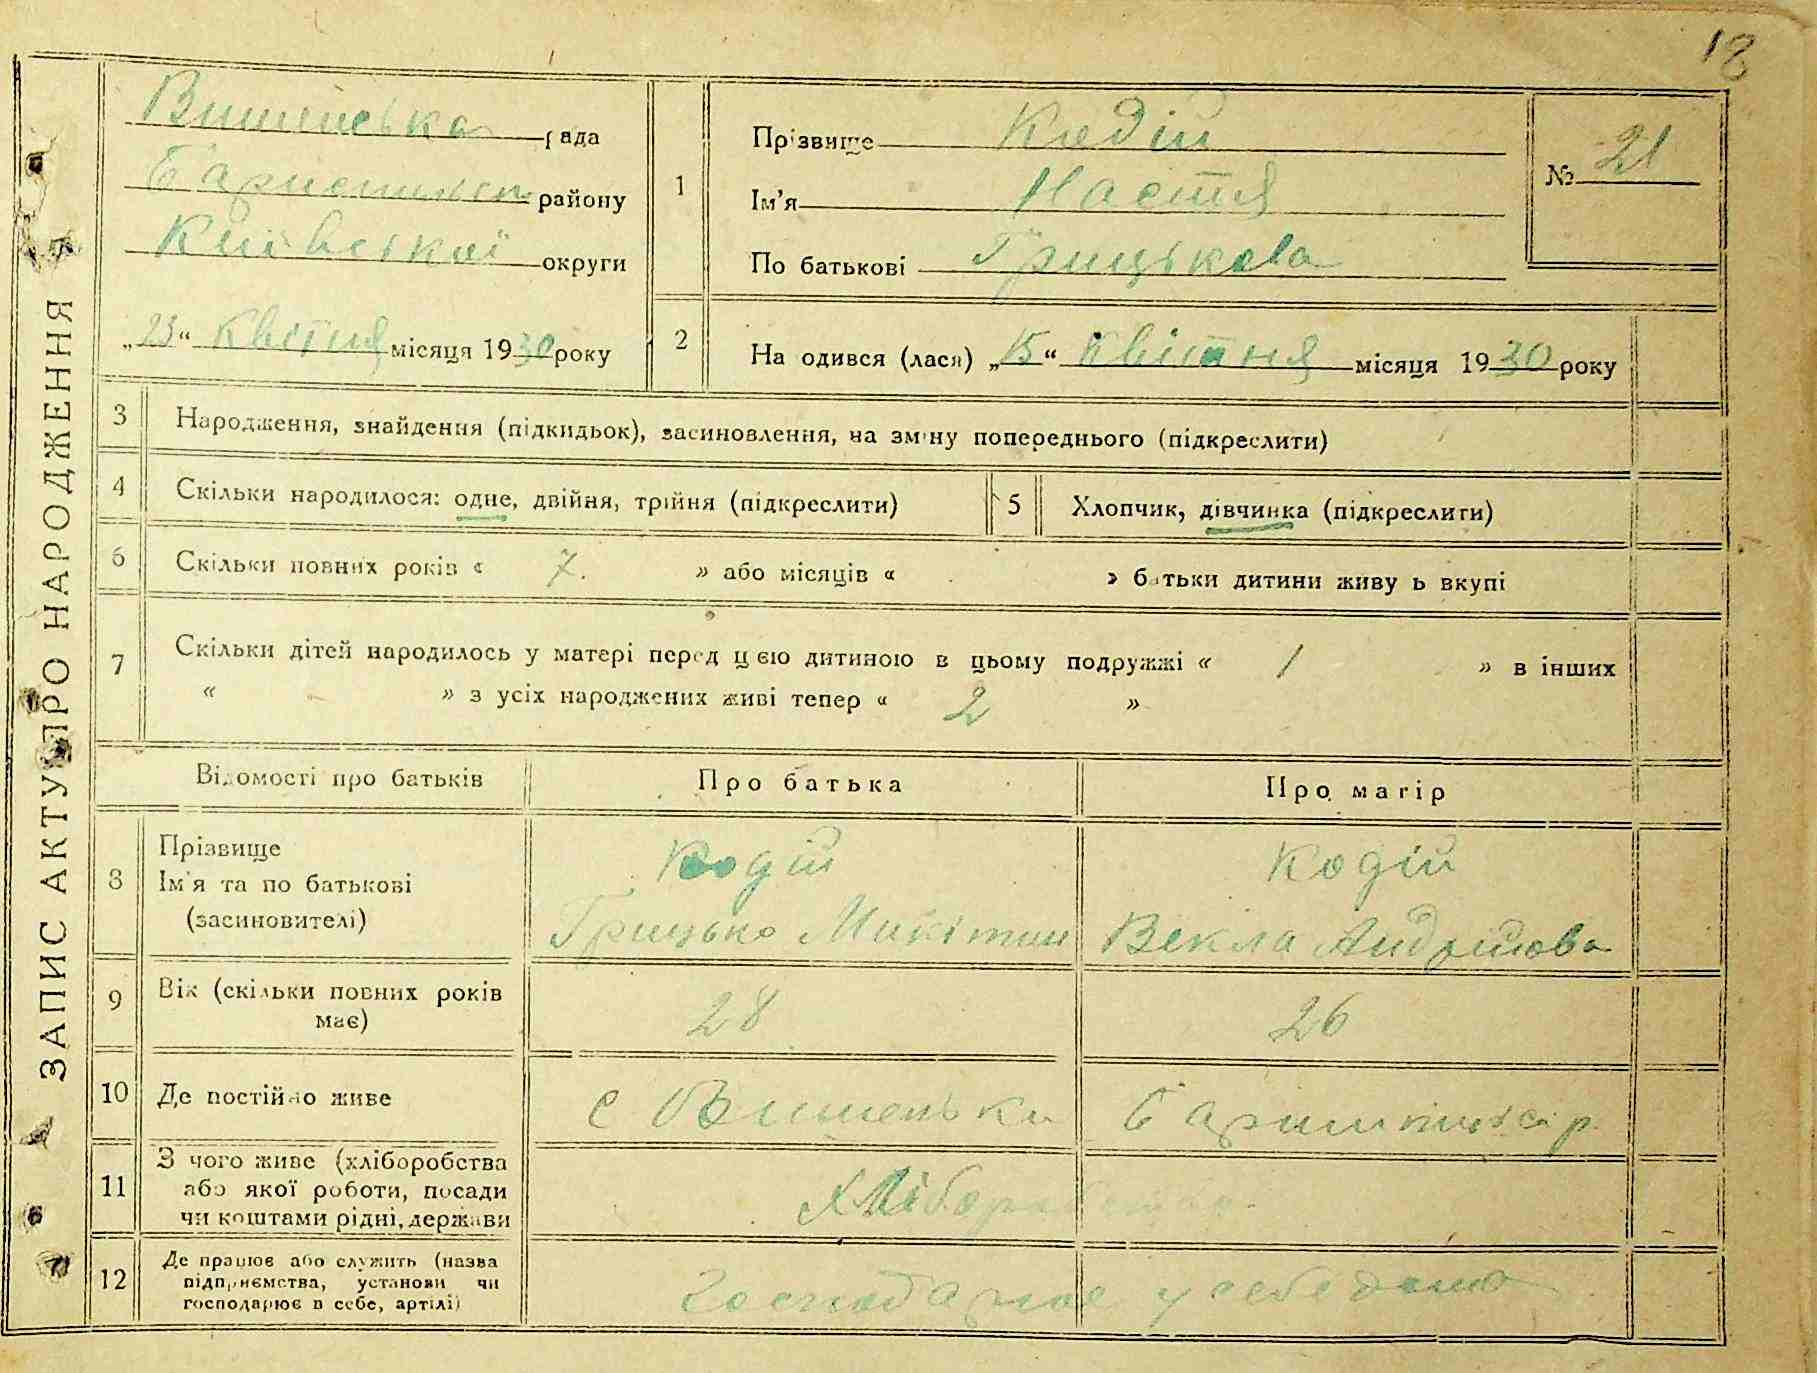 18
ЗАПИС АКТУ ПРО НАРОДЖЕННЯ
Вишенська рада
району
Київської округи
„23“ Квітня місяця 1930 року
1
Прізвище Кодій
Ім'я Настя
По батькові Грицькова
№ 21
2
На одився (лася) „15“ Квітня місяця 1930 року
3 Народження, знайдення (підкидьок), засиновлення, на зміну попереднього (підкреслити)
4 Скільки народилося: одне, двійня, трійня (підкреслити)
5 Хлопчик, дівчинка (підкреслити)
6 Скільки повних років « 7. » або місяців « » батьки дитини живу ь вкупі
7 Скільки дітей народилось у матері перед цією дитиною в цьому подружжі « 1 » в інших
« » з усіх народжених живі тепер « 2 »
Відомості про батьків Про батька Про матір
8 Прізвище Кодій Кодій
Ім'я та по батькові
(засиновителі) Грицько Микітин Векла Андрійова
9 Вік (скільки повних років
має) 28 26
10 Де постійно живе с Вишеньки
11 З чого живе (хліборобства
або якої роботи, посади
чи коштами рідні, держави Хліборобство
12 Де працює або служить (назва
підприємства, установи чи
господарює в себе, артілі) Господарює у себе дома